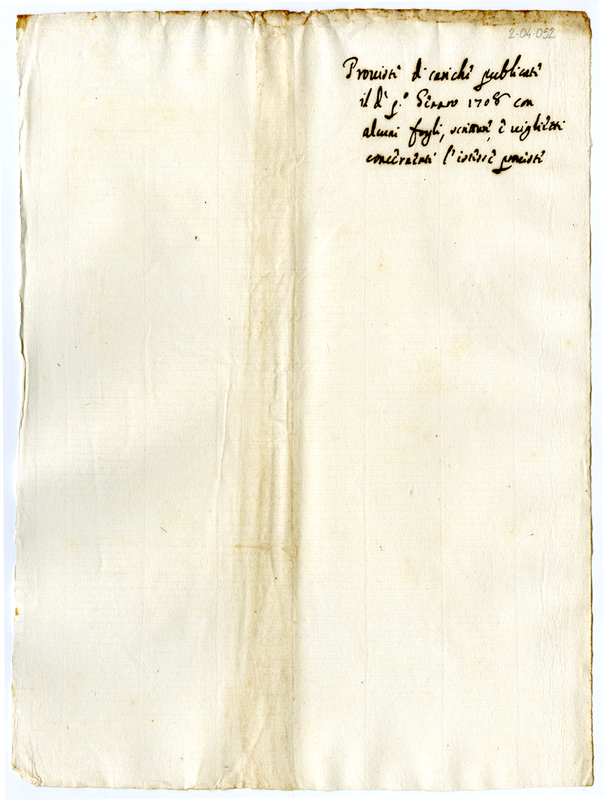 2-04-052
Proviste di cariche publicate
il dì p.º Genaro 1708 con
alcuni fogli, scritture, e viglietti
concernenti l'istesse proviste